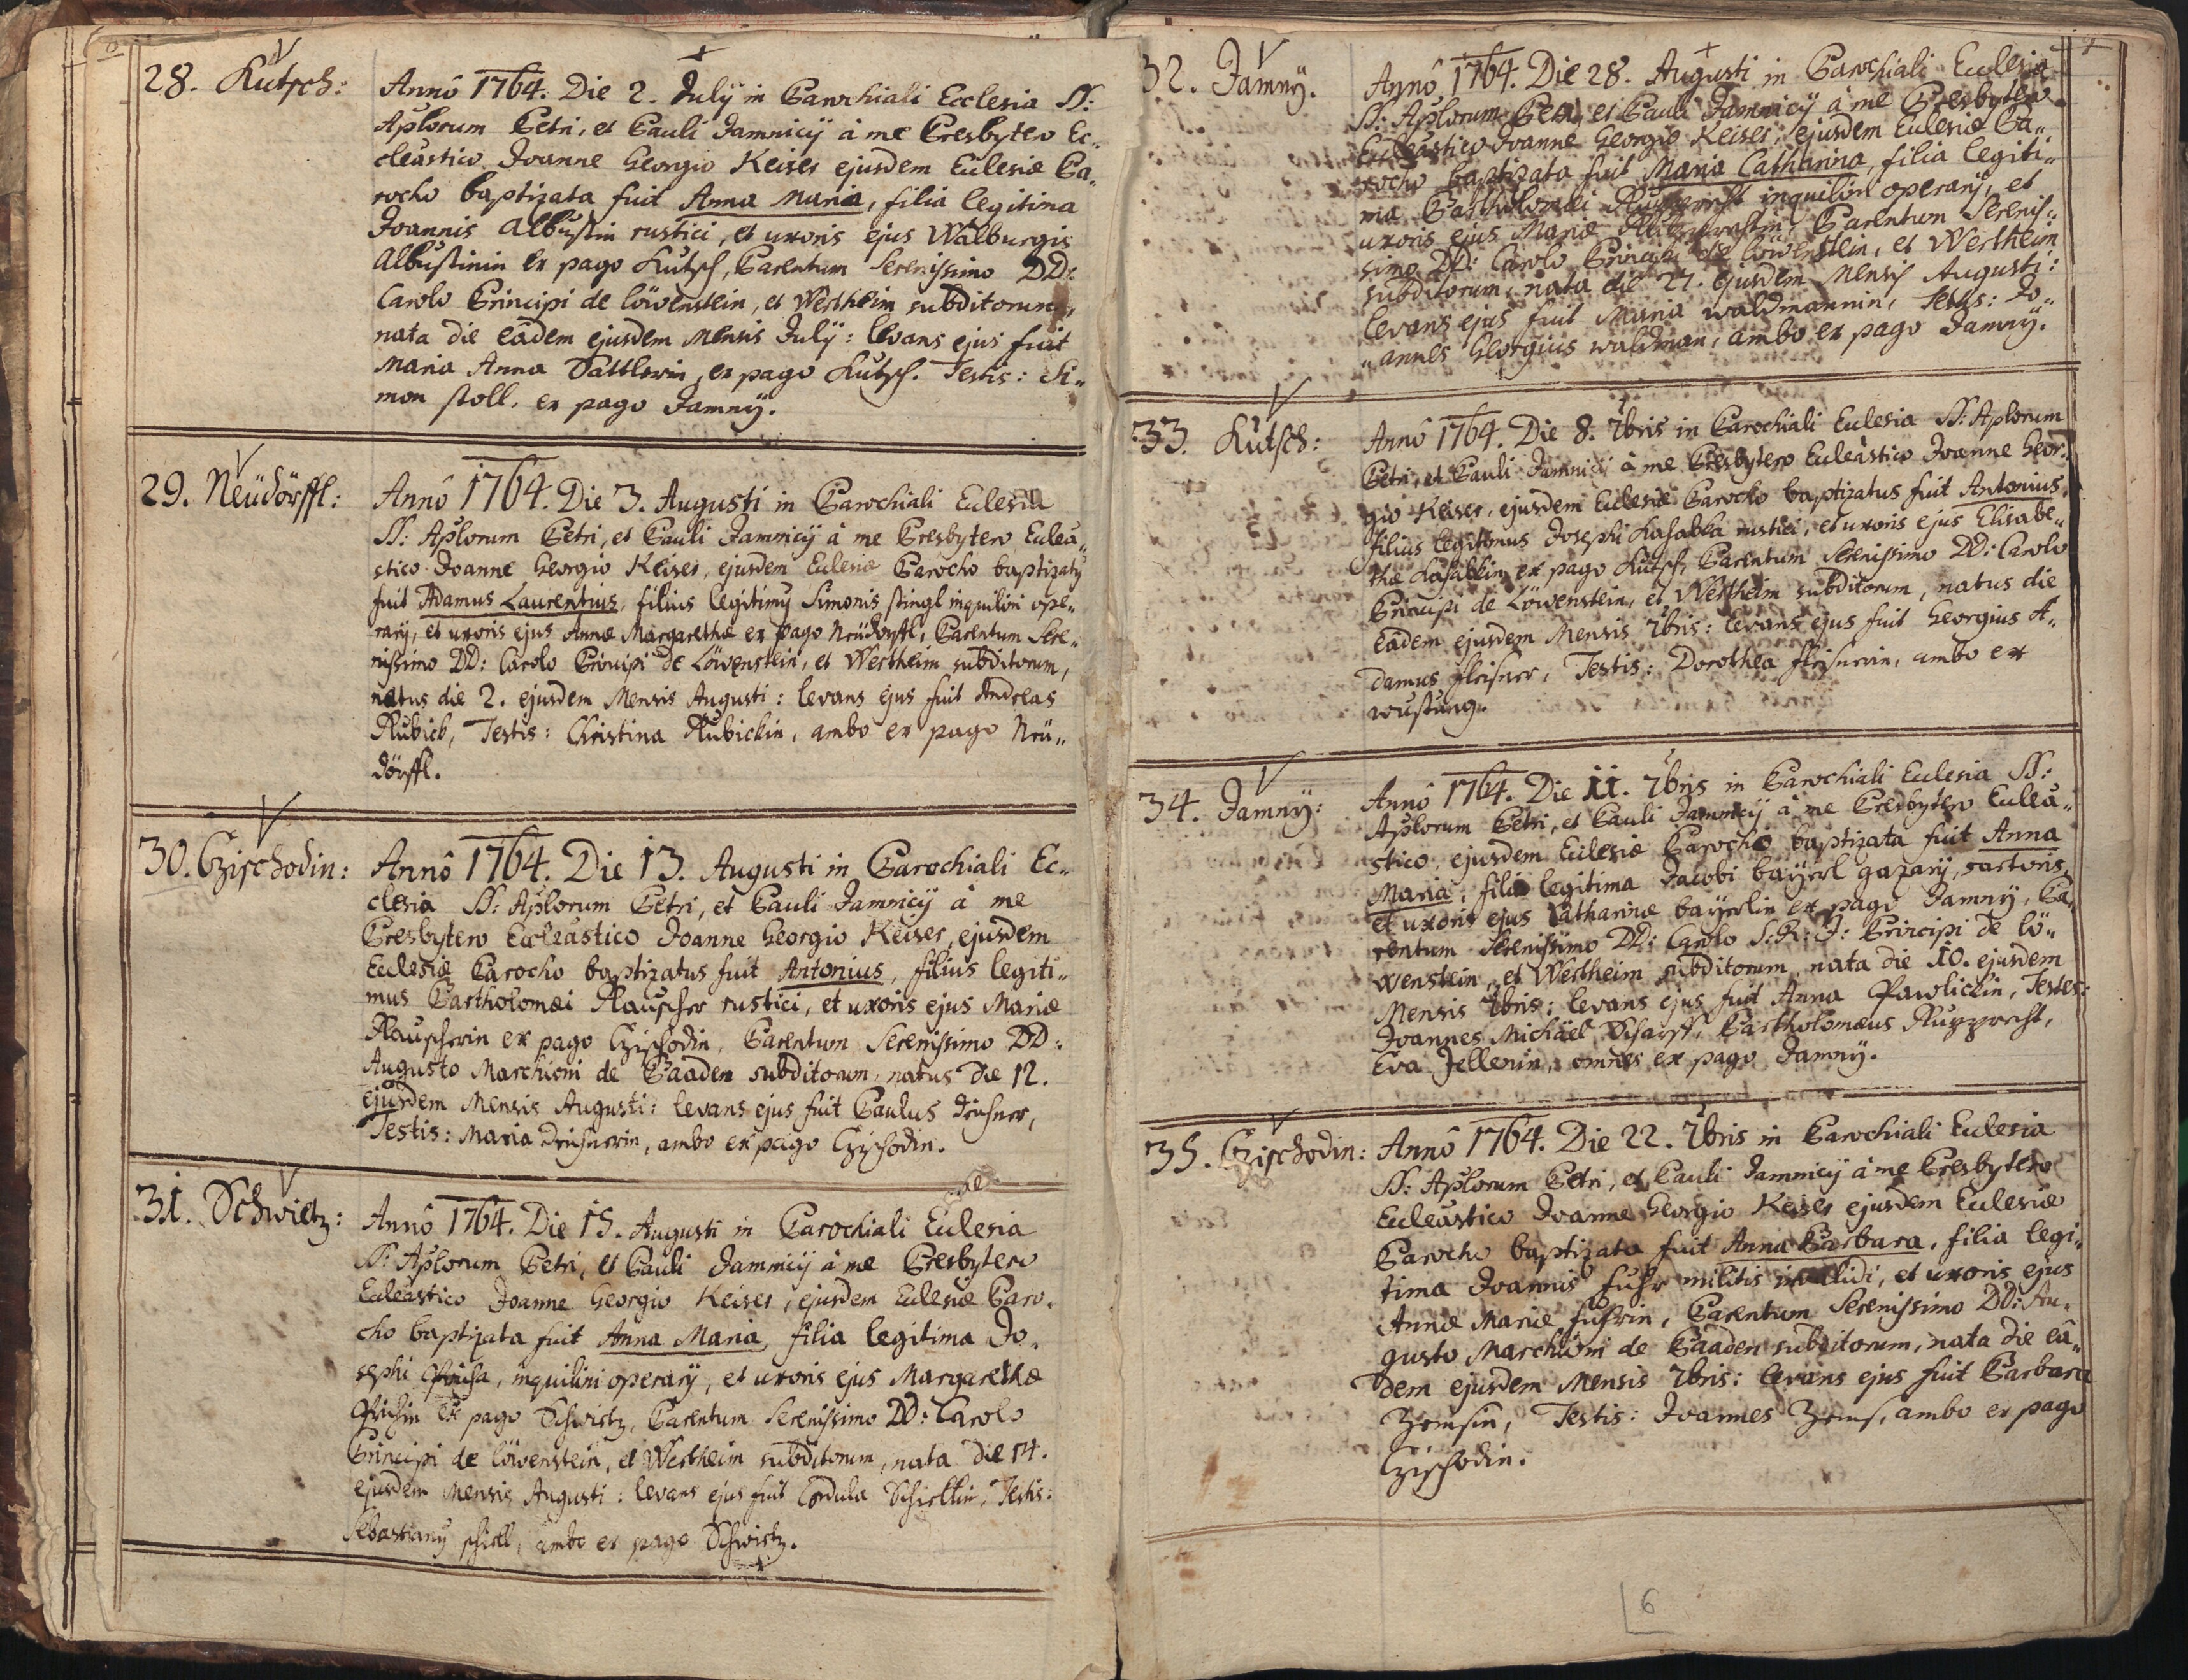 28. Kutsch:
Annô 1764. Die 2. Julÿ in Parochiali Ecclesia SS:
Aplorum Petri, et Pauli Jamnicÿ à me Presbytero Ec„
cleâstico Joanne Georgio Keiser ejusdem Eclesiæ Pa„
rocho baptizata fuit Anna Maria, filia legitima
Joannis Albustin rustici, et uxoris ejus Walburgis
Albustinin ex pago Kutsch, Parentum Serenissimo DD:
Carolo Principi de löwenstein, et Wertheim subditorum,
nata die eâdem ejusdem Mensis Julÿ: levans ejus fuit
Maria Anna Sattlerin, ex pago Kutsch. Testis: Si„
mon stoll, ex pago Jamnÿ.
29. Neüdörffl:
Annô 1764. Die 3. Augusti in Parochiali Eclesia
SS: Aplorum Petri, et Pauli Jamnicÿ à me Presbytero Eclea„
stico Joanne Georgio Keiser, ejusdem Eclesiæ Parocho baptizatÿ
fuit Adamus Laurentius, filius legitimÿ Simonis stingl inquilini ope„
rarÿ, et uxoris ejus Annæ Margarethæ ex pago Neüdorffl, Parentum Sere„
nissimo DD: Carolo Principi de Löwenstein, et Wertheim subditorum,
natus die 2. ejusdem Mensis Augusti: levans ejus fuit Andreas
Rubick, Testis: Christina Rubickin, ambo ex pago Neü„
dörffl.
30. Czischodin:
Annô 1764. Die 13. Augusti in Parochiali Ec„
clesia SS: Aplorum Petri, et Pauli Jamnicÿ à me
Presbytero Eccleâstico Joanne Georgio Keiser, ejusdem
Eclesiæ Parocho baptizatus fuit Antonius, filius legiti„
mus Bartholomæi Rauscher rustici, et uxoris ejus Mariæ
Rauscherin ex pago Czischodin, Parentum Serenissimo DD:
Augusto Marchioni de Baaden subditorum, natus die 12.
ejusdem Mensis Augusti: levans ejus fuit Paulus
Testis: Maria ambo ex pago Czischodin.
31. Schwietz:
Annô 1764. Die 15. Augusti in Parochiali Eclesia
SS: Aplorum Petri, et Pauli Jamnicÿ à me Presbytero
Ecleâstico Joanne Georgio Keiser, ejusdem Eclesiæ Paro„
cho baptizata fuit Anna Maria, filia legitima Jo„
sephi inquilini operarÿ, et uxoris ejus Margarethæ
ex pago Schwietz, Parentum Serenissimo DD: Carolo
Principi de löwenstein, et Wertheim subditorum, nata die 14.
ejusdem Mensis Augusti: levans ejus fuit Cordula Testis:
Sebastianÿ ambo ex pago Schwietz.
32. Jamnÿ.
Annô 1764. Die 28. Augusti in Parochiali Eclesia
SS: Aplorum Petri, et Pauli Jamnicÿ à me Presbytero
Ecleâstico Joanne Georgio Keiser, ejusdem Eclesiæ Pa„
rocho baptizata fuit Maria Catharina, filia legiti„
ma Bartholomæi Rupprecht inquilini operarÿ, et
uxoris ejus Mariæ Parentum Serenis„
simo DD: Carolo Principi de löwenstein, et Wertheim
subditorum, nata die 27. ejusdem Mensis Augusti:
levans ejus fuit Maria waldmannin, Testis: Jo„
„annes Georgius waldman, ambo ex pago Jamnÿ.
33. Kutsch:
Annô 1764. Die 8. 7bris in Parochiali Eclesia SS: Aplorum
Petri, et Pauli Jamnicÿ à me Presbytero Ecleâstico Joanne Geor„
gio Keiser, ejusdem Eclesiæ Parocho baptizatus fuit Antonius,
filius legitimus Josephi rustici, et uxoris ejus Elisabe„
thæ ex pago Kutsch, Parentum Serenissimo DD: Carolo
Principi de Löwenstein, et Wertheim subditorum, natus die
eâdem ejusdem Mensis 7bris: levans ejus fuit Georgius A„
damus fleisner, Testis: Dorothea fleisnerin, ambo ex
wustung.
34. Jamnÿ:
Annô 1764. Die 11. 7bris in Parochiali Eclesia SS:
Aplorum Petri, et Pauli Jamnicÿ à me Presbytero Eclea„
stico, ejusdem Eclesiæ Parocho baptizata fuit Anna
Maria, filia legitima Jacobi baÿerl gazarÿ, sartoris,
et uxoris ejus Catharinæ baÿerlin ex pago Jamny, Pa„
rentum Serenissimo DD: Carolo S: R: J: Principi de lö„
wenstein, et Wertheim subditorum, nata die 10. ejusdem
Mensis 7bris: levans ejus fuit Anna Pawlickin, Testes:
Joannes Michäel Scharff, Bartholomæus Rupprecht,
Eva Jellenin, omnes ex pago Jamnÿ.
35. Czischodin:
Annô 1764. Die 22. 7bris in Parochiali Eclesia
SS: Aplorum Petri, et Pauli Jamnicÿ à me Presbytero
Ecleâstico Joanne Georgio Keiser ejusdem Eclesiæ
Parocho baptizata fuit Anna Barbara, filia legi„
tima Joannis fuhr militis invalidi, et uxoris ejus
Annæ Mariæ fuhrin, Parentum Serenissimo DD: Au„
gusto Marchioni de Baaden subditorum, nata die eâ„
dem ejusdem Mensis 7bris: levans ejus fuit Barbara
Zemsin, Testis: Joannes Zems, ambo ex pago
Czischodin.
6